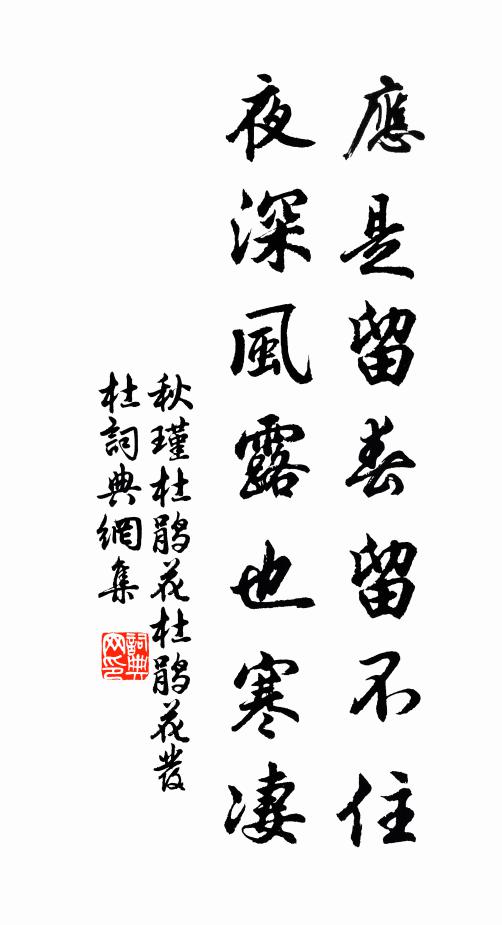 應是留春留不住
夜深風露也寒凄
秋瑾杜鵑花杜鵑花發
杜詞典網集
詞典
网印